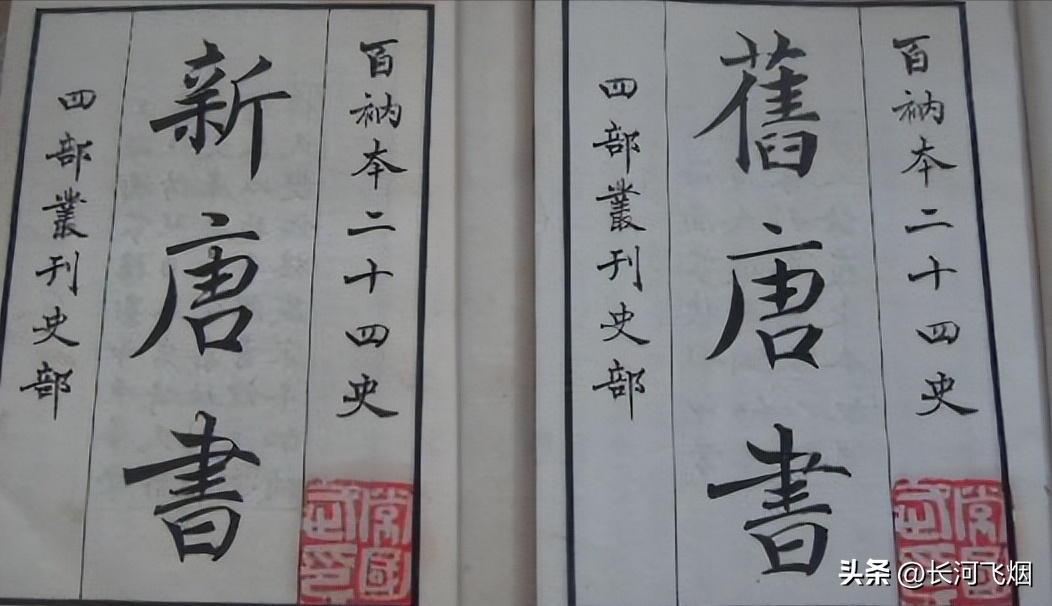 百衲本二十四史
新唐書
四部叢刊史部
百衲本二十四史
舊唐書
四部叢刊史部
头条 @长河飞烟